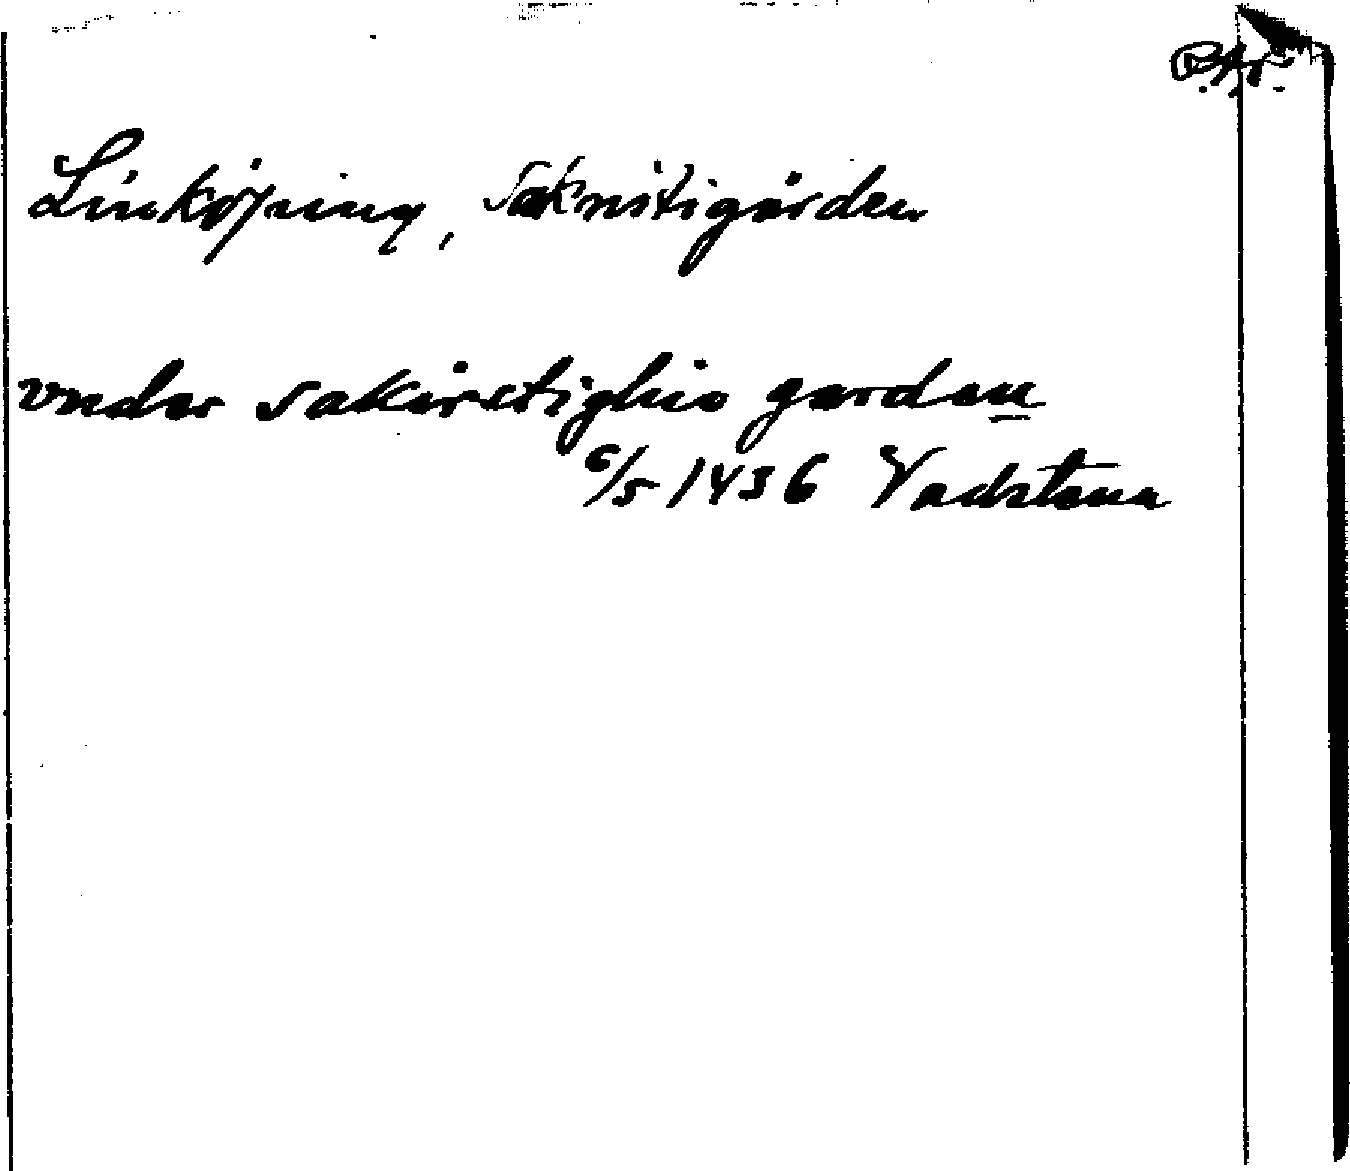 Linköping, Sakristigården
vnder sakirstighio garden
6/5 1436 Vadstena